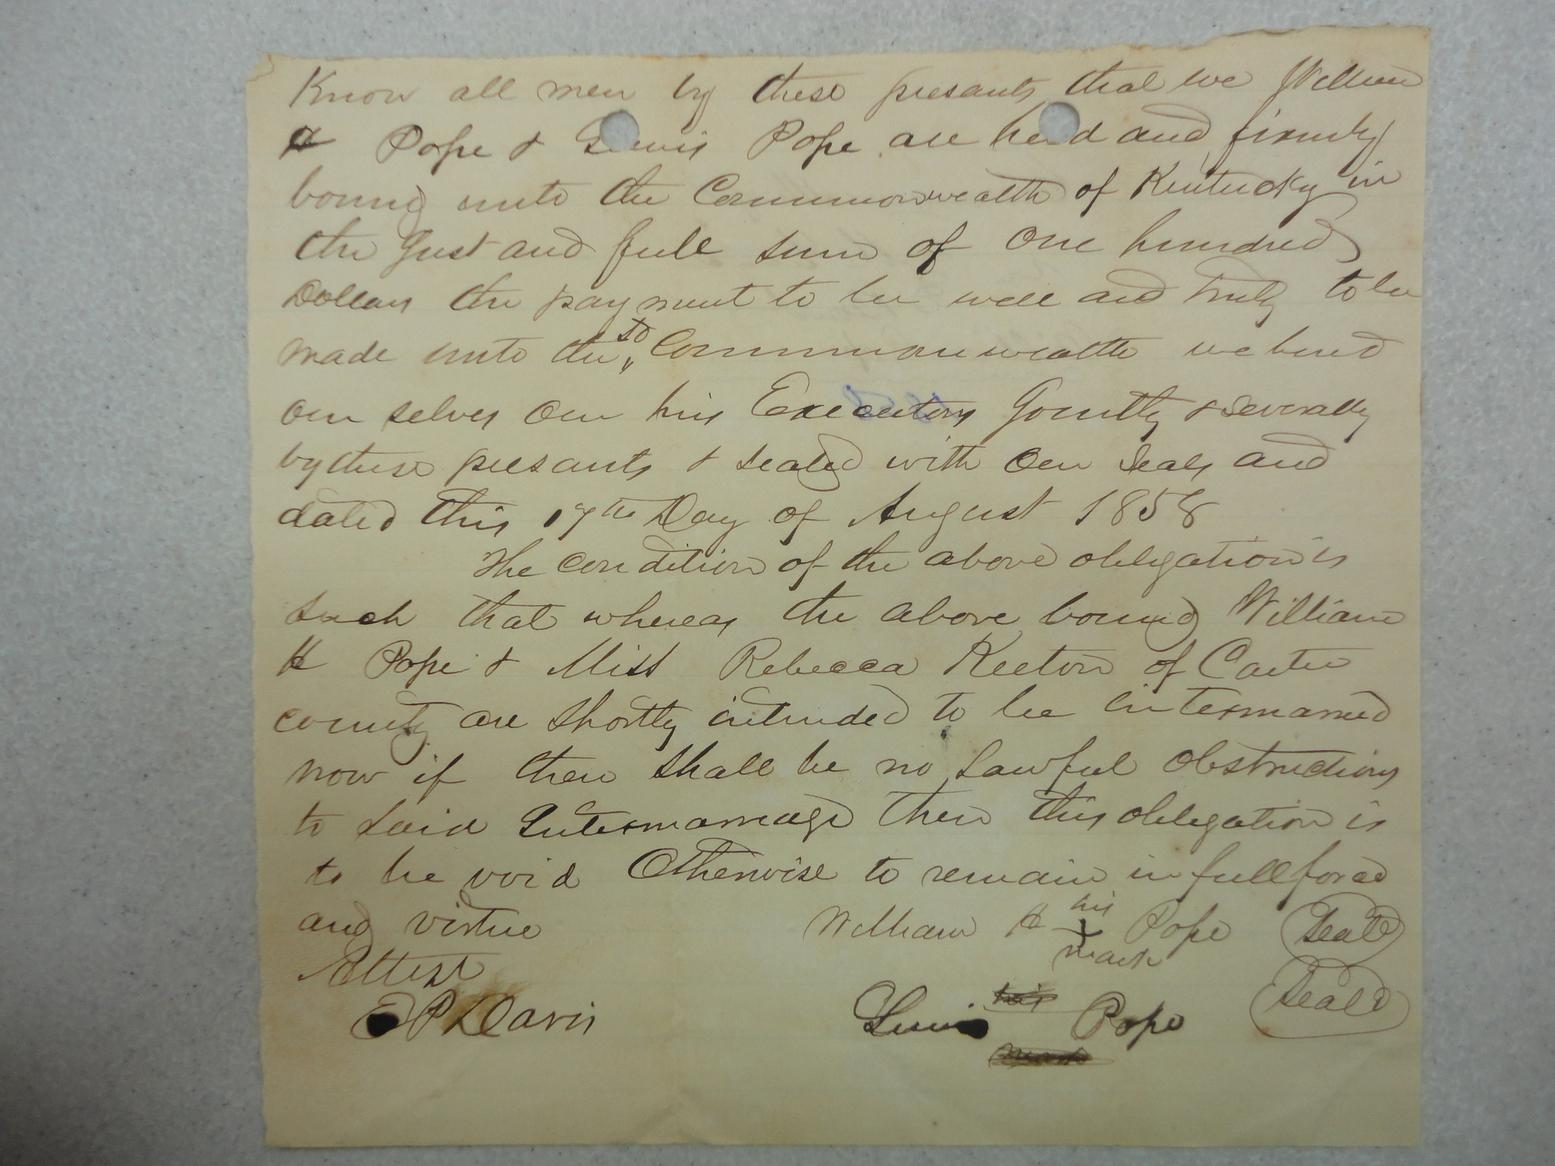 Know all men by these presants that we William
H Pope & Lewis Pope are held and firmly
bound unto the Commonwealth of Kentucky in
the Just and full sum of One hundred
Dollars the payment to be well and truly to be
made unto the sd Commonwealth we bind
our selves our hirs Executors Jointly & Severally
by these presants & sealed with our seals and
dated this 17th Day of August 1858
The condition of the above obligation is
such that whereas the above bound William
H Pope & Miss Rebecca Keeton of Carter
county are shortly intended to be intermarried
now if there shall be no Lawful obstructions
to said Intermarriage then this obligation is
to be void Otherwise to remain in full force
and virtue William H his Pope Seald
mark
Attest
E P Davis Lewis Pope Seald